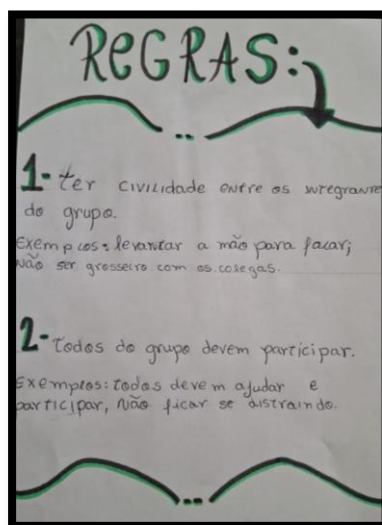 REGRAS:
1- ter civilidade entre os integrante
do grupo.
Exemplos: levantar a mão para falar;
não ser grosseiro com os colegas.
2- Todos do grupo devem participar.
Exemplos: todos devem ajudar e
participar, não ficar se distraindo.